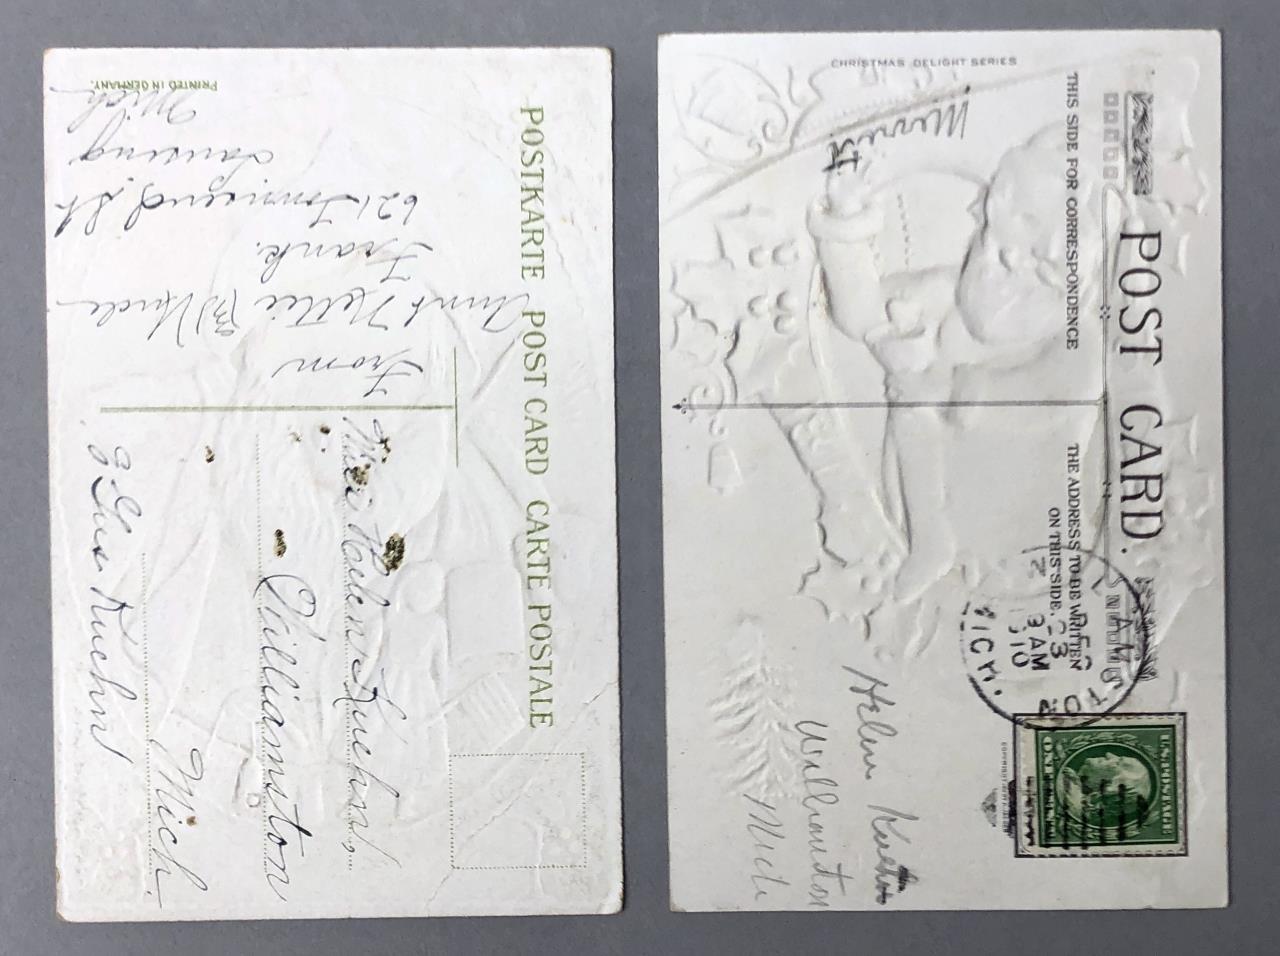 POSTKARTE POST CARD CARTE POSTALE
PRINTED IN GERMANY.
From
Aunt Nettie & Uncle
Frank.
621 Townsend St
Lansing
Mich
Miss Helen Kuehn,
Williamston
Mich.
% Gus Kuehn
CHRISTMAS DELIGHT SERIES
POST CARD.
THIS SIDE FOR CORRESPONDENCE
THE ADDRESS TO BE WRITTEN
ON THIS SIDE.
DEC
23
3 AM
1910
MICH.
U.S. POSTAGE
ONE CENT
Helen
Williamston
Mich